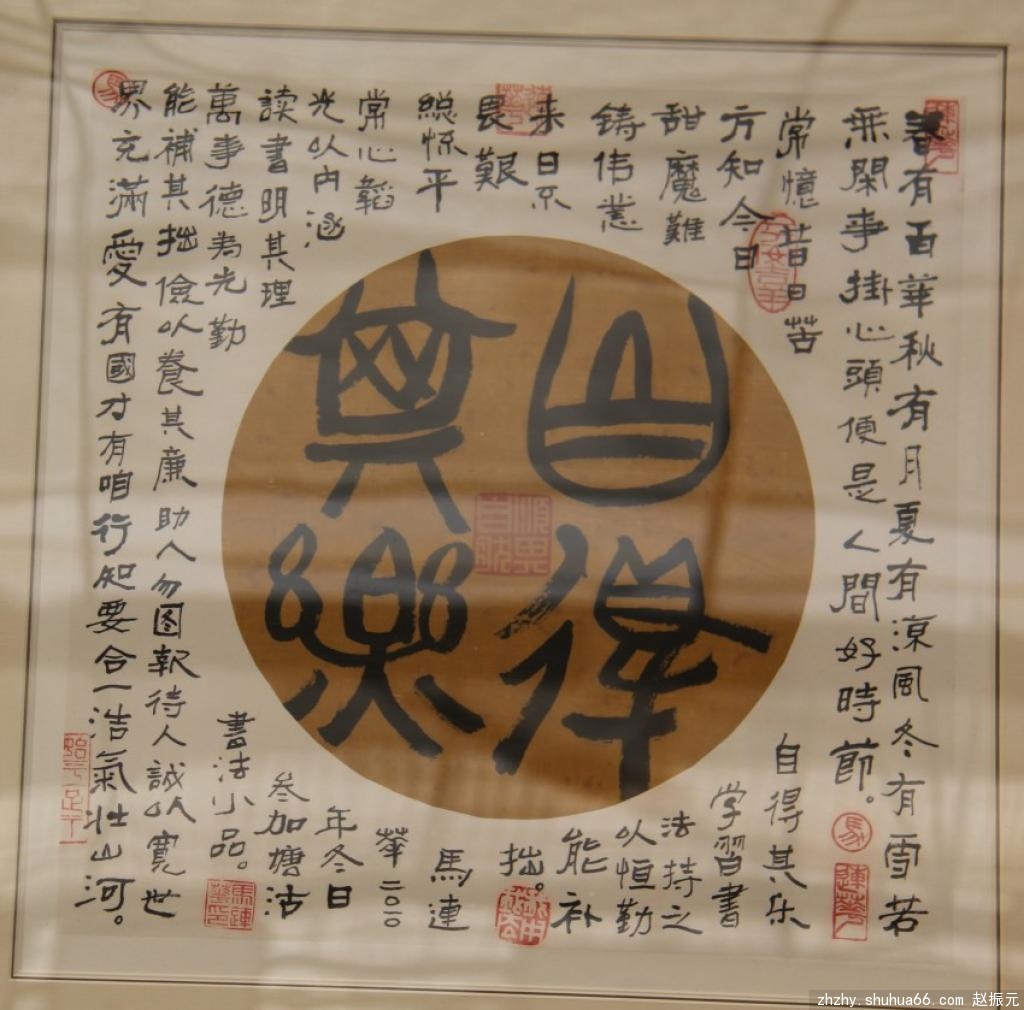 春有百華秋有月夏有涼風冬有雪若
無閑事掛心頭便是人間好時節。
常憶昔日苦
方知今日
甜魔難
铸伟業
来日不
畏艱
総怀平
常心韜
光以内涵
读書明其理
萬事德为先勤
能補其拙儉以養其廉助人勿图報待人誠以寬世
界充滿愛有國才有咱行知要合一浩氣壮山河。
自得
其樂
自得其乐
学習書
法持之
以恒勤
能补
拙。
馬連
華二〇一〇
年冬日
叁加塘沽
書法小品。
zhzhy.shuhua66.com 赵振元